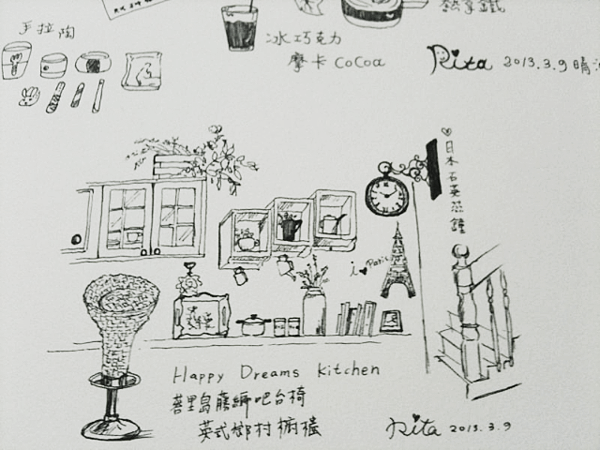 熱拿鐵
手拉陶
冰巧克力
摩卡 CoCoa
Rita 2013.3.9 晴
日本石英巫鐘
i ♥ Paris
Happy Dreams Kitchen
峇里島藤編吧台椅
英式鄉村櫥櫃
Rita 2013.3.9